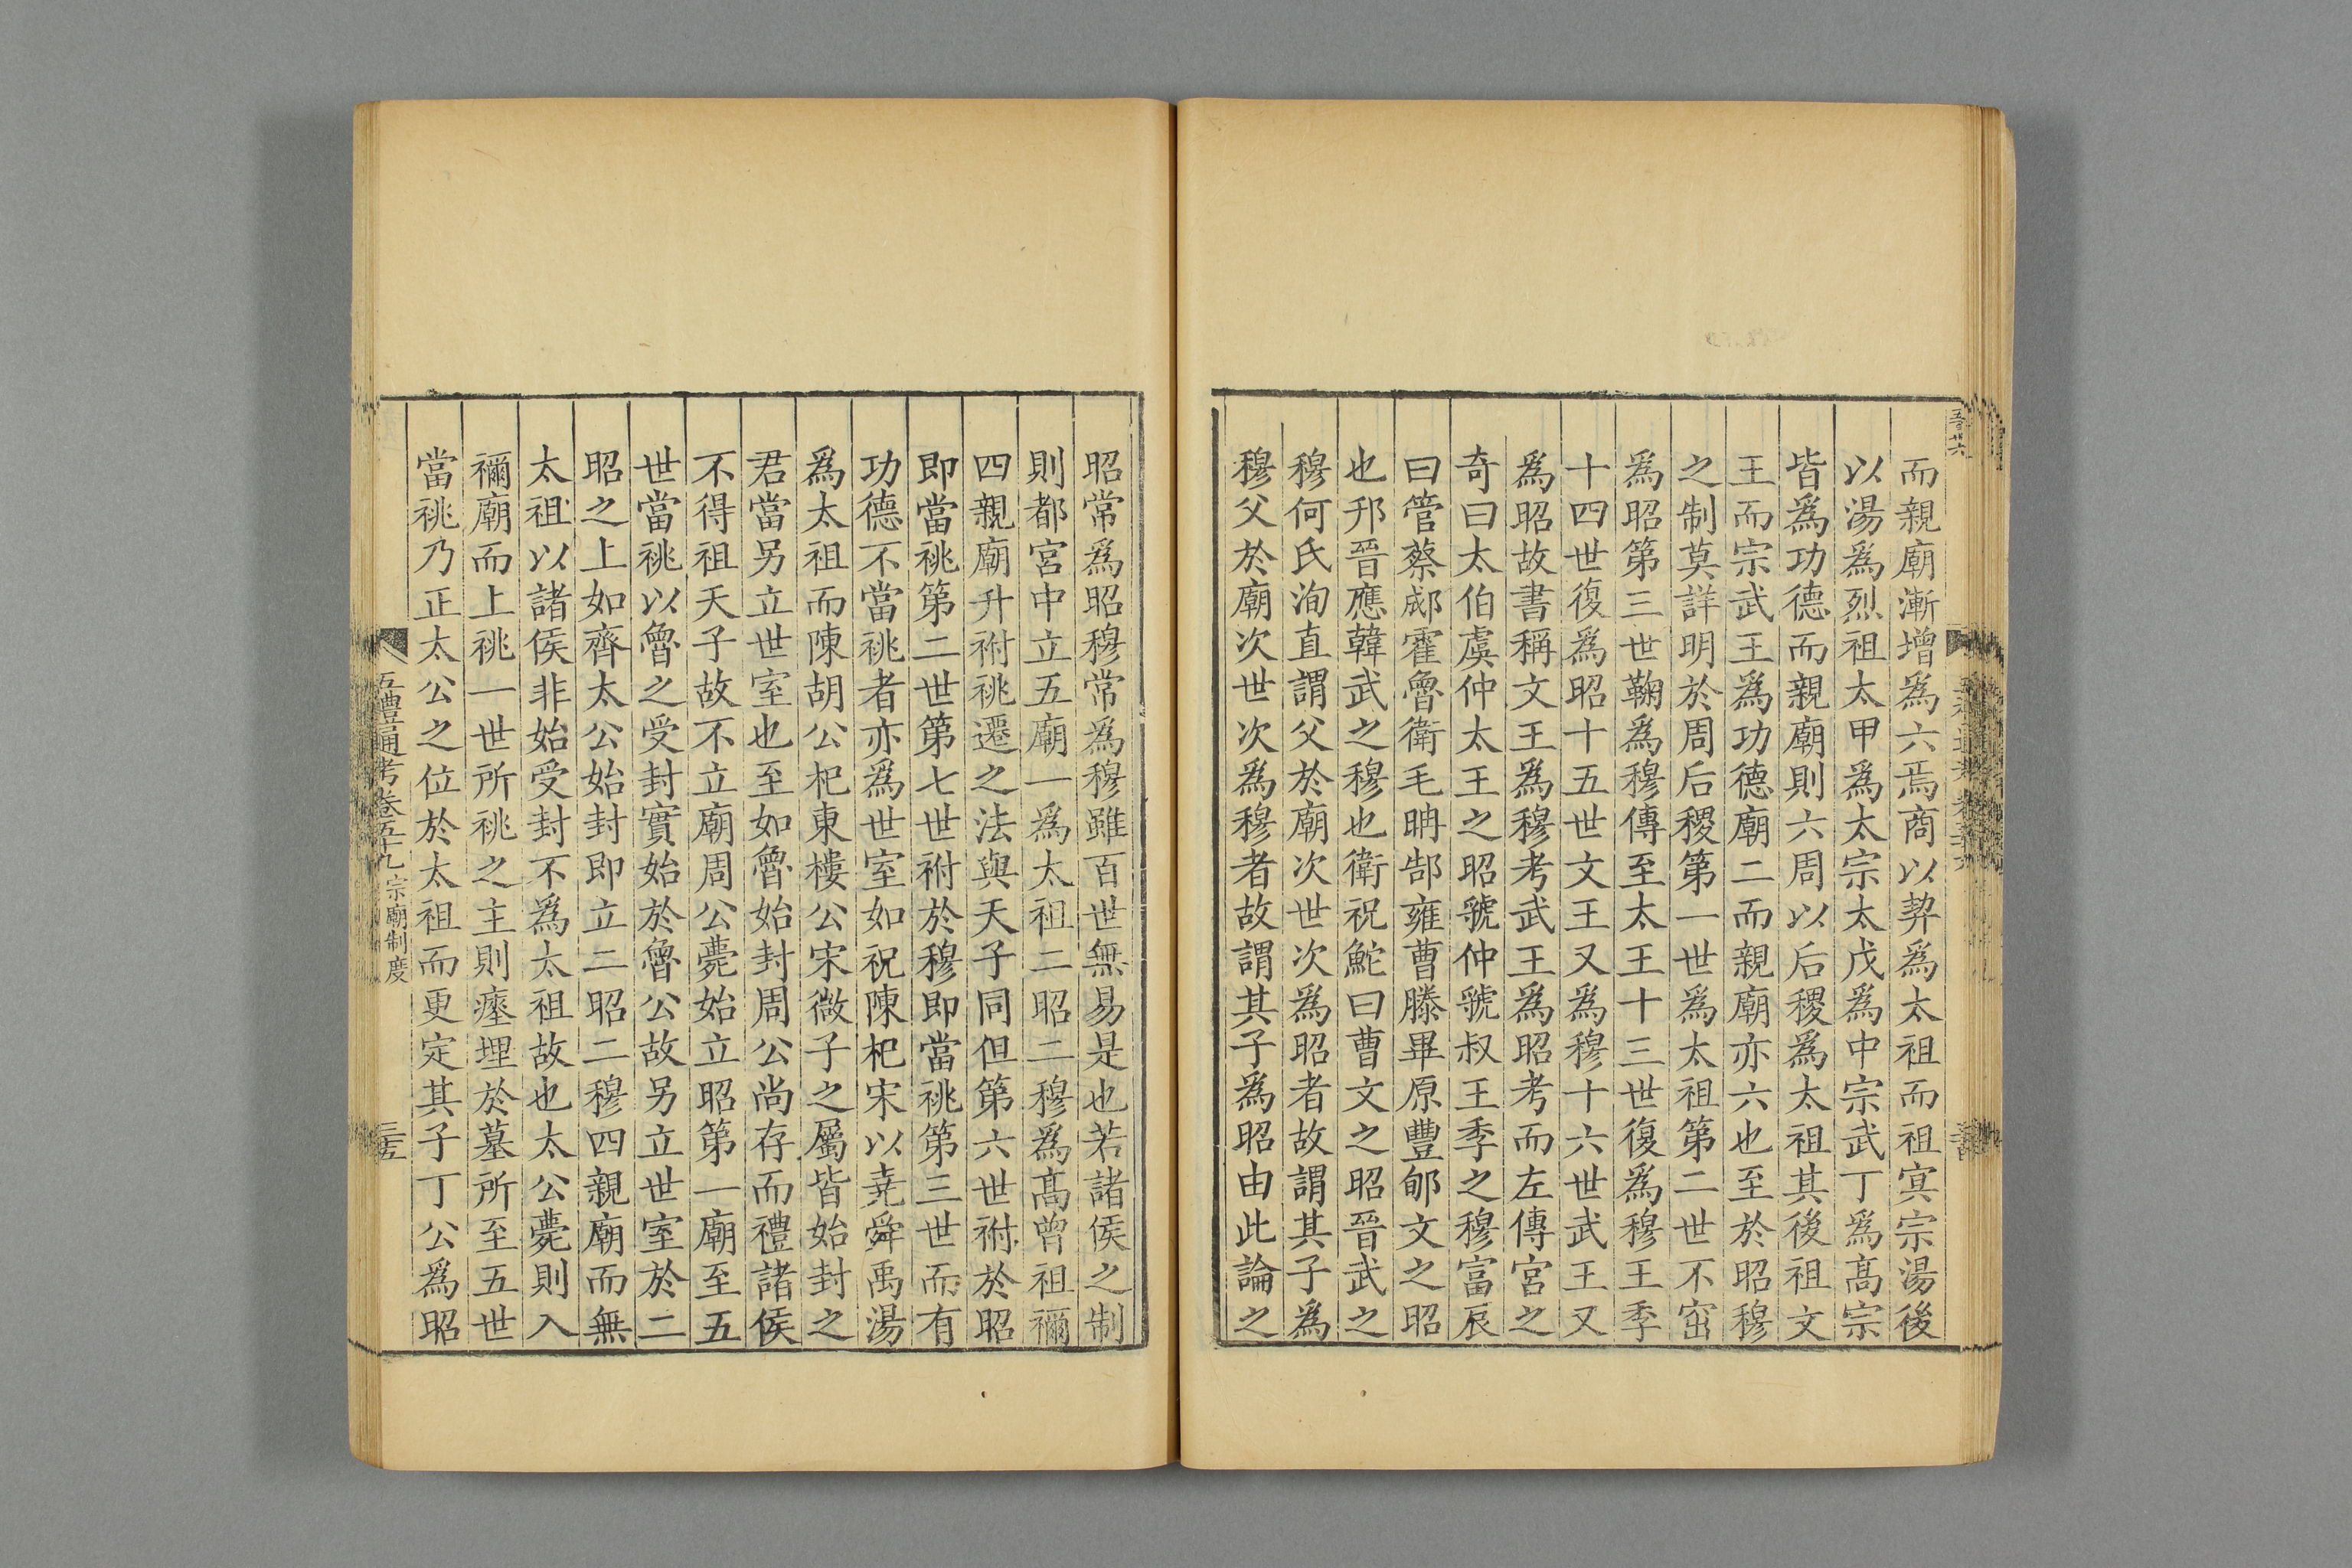 而親廟漸增爲六焉商以契爲太祖而祖冥宗湯後
以湯爲烈祖太甲爲太宗太戊爲中宗武丁爲髙宗
皆爲功德而親廟則六周以后稷爲太祖其後祖文
王而宗武王爲功德廟二而親廟亦六也至於昭穆
之制莫詳明於周后稷第一世爲太祖第二世不窋
爲昭第三世鞠爲穆傳至太王十三世復爲穆王季
十四世復爲昭十五世文王又爲穆十六世武王又
爲昭故書稱文王爲穆考武王爲昭考而左傳宮之
奇曰太伯虞仲太王之昭虢仲虢叔王季之穆富辰
曰管蔡郕霍魯衛毛聃郜雍曹滕畢原豐郇文之昭
也邘晉應韓武之穆也衛祝鮀曰曹文之昭晉武之
穆何氏洵直謂父於廟次世次爲昭者故謂其子爲
穆父於廟次世次爲穆者故謂其子爲昭由此論之
昭常爲昭穆常爲穆雖百世無易是也若諸侯之制
則都宮中立五廟一爲太祖二昭二穆爲髙曾祖禰
四親廟升祔祧遷之法與天子同但第六世祔於昭
即當祧第二世第七世祔於穆即當祧第三世而有
功德不當祧者亦爲世室如祝陳杞宋以堯舜禹湯
爲太祖而陳胡公杞東樓公宋微子之屬皆始封之
君當另立世室也至如魯始封周公尚存而禮諸侯
不得祖天子故不立廟周公薨始立昭第一廟至五
世當祧以魯之受封實始於魯公故另立世室於二
昭之上如齊太公始封即立二昭二穆四親廟而無
太祖以諸侯非始受封不爲太祖故也太公薨則入
禰廟而上祧一世所祧之主則瘞埋於墓所至五世
當祧乃正太公之位於太祖而更定其子丁公爲昭
五禮通考卷五十九 宗廟制度